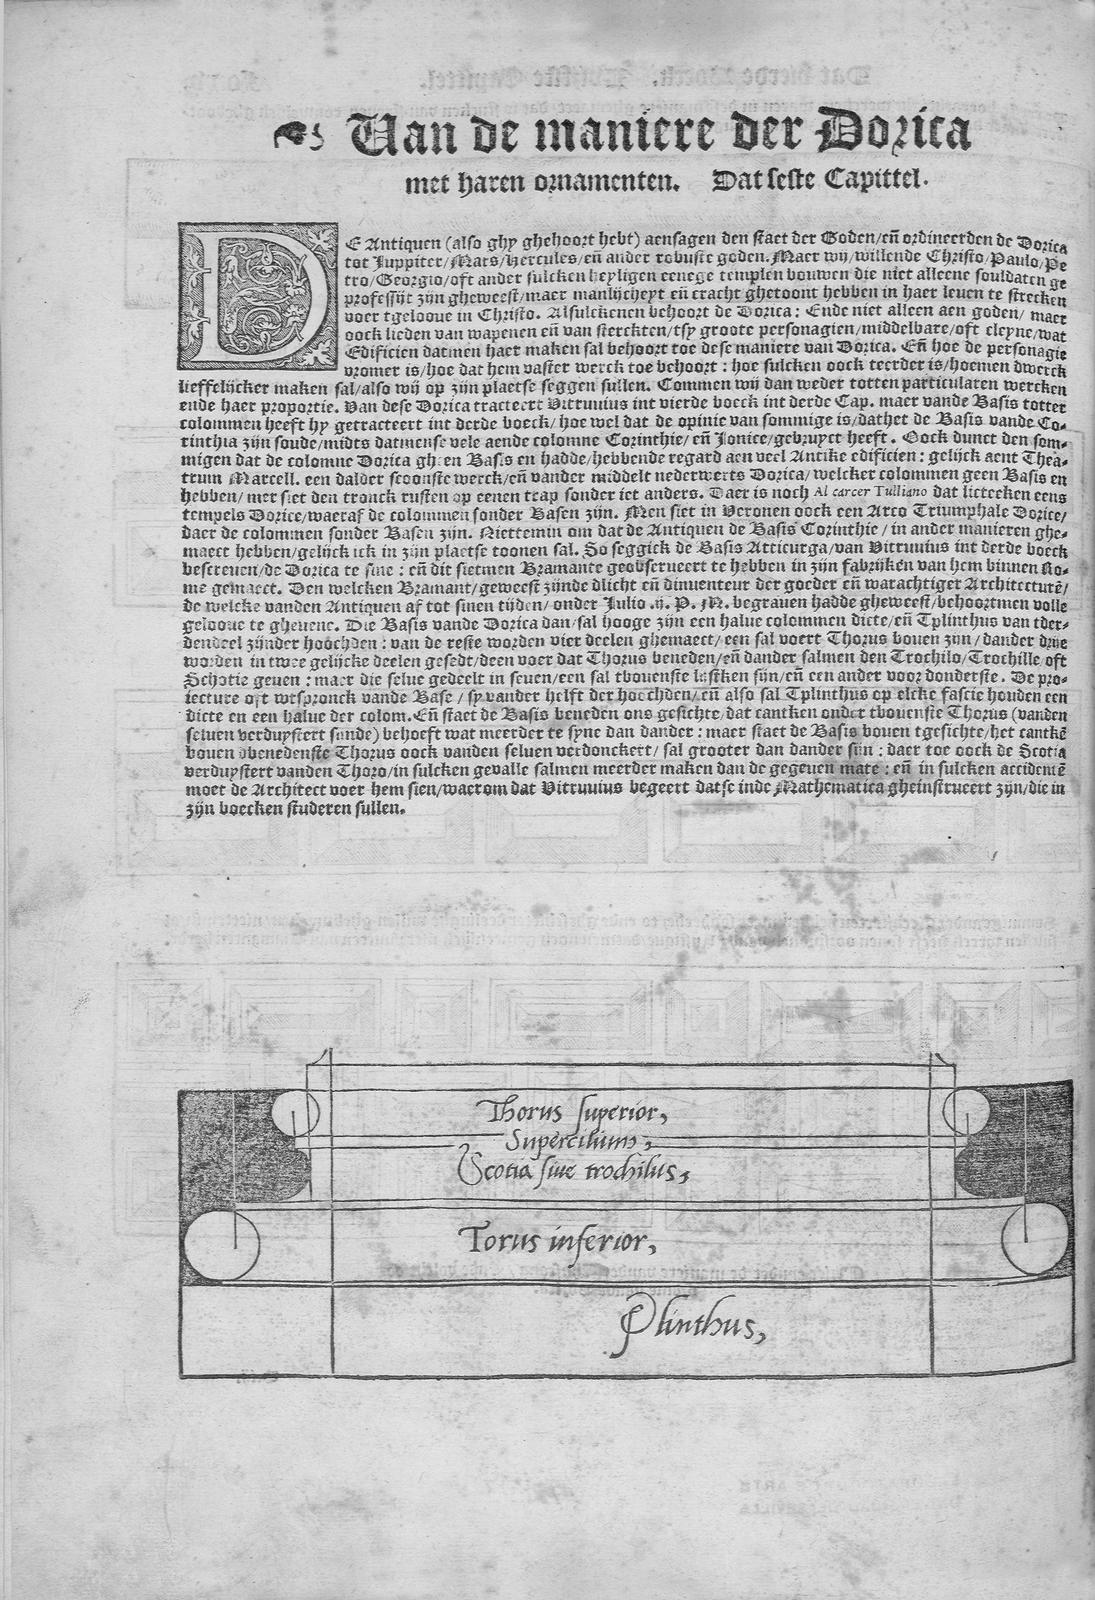 Van de maniere der Dorica
met haren ornamenten. Dat seste Capittel.
DE Antiquen (also ghy ghehoort hebt) aensagen den staet der Goden/eñ ordineerden de Dorica
tot Juppiter/Mars/Hercules/eñ ander robuste goden. Maer wij/willende Christo/Paulo/Pe
tro/Georgio/oft ander sulcken heyligen eenege templen bouwen die niet alleene souldaten ge
professijt zijn gheweest/maer manlijcheyt eñ cracht ghetoont hebben in haer leuen te strecken
voer tgelooue in Christo. Alsulckenen behoort de Dorica: Ende niet alleen aen goden/ maer
oock lieden van wapenen eñ van sterckten/tsy groote personagien/middelbare/oft cleyne/wat
Edificien datmen haer maken sal behoort toe dese maniere van Dorica. Eñ hoe de personagie
vromer is/hoe dat hem vaster werck toe behoort: hoe sulcken oock teerder is/hoemen dwerck
lieffelijcker maken sal/also wij op zijn plaetse seggen sullen. Commen wij dan weder totten particularen wercken
ende haer proportie. Van dese Dorica tracteert Vitruuius int vierde boeck int derde Cap. maer vande Basis totter
colommen heeft hy getracteert int derde boeck/ hoe wel dat de opinie van sommige is/dathet de Basis vande Co-
rinthia zijn soude/midts datmense vele aende colomne Corinthie/eñ Jonice/gebruyct heeft. Oock dunct den som-
migen dat de colomne Dorica gheen Basis en hadde/hebbende regard aen veel Antike edificien: gelijck aent Thea-
trum Marcell. een dalder scoonste werck/eñ vander middelt nederwerts Dorica/welcker colommen geen Basis en
hebben/ mer siet den tronck rusten op eenen trap sonder iet anders. Daer is noch Al carcer Tulliano dat licteeken eens
tempels Dorice/waeraf de colommen sonder Basen zijn. Men siet in Veronen oock een Arco Triumphale Dorice/
daer de colommen sonder Basen zijn. Niettemin om dat de Antiquen de Basis Corinthie/ in ander manieren ghe-
maect hebben/gelijck ick in zijn plaetse toonen sal. So seggick de Basis Atticurga/van Vitruuius int derde boeck
bescreuen/de Dorica te sine: eñ dit sietmen Bramante geobserueert te hebben in zijn fabrijken van hem binnen Ro-
me gemaect. Den welcken Bramant/geweest zijnde dlicht eñ dinuenteur der goeder eñ warachtiger Architecturē/
de welcke vanden Antiquen af tot sinen tijden/ onder Julio .ij. P. M. begrauen hadde gheweest/behoortmen volle
gelooue te gheuene. Die Basis vande Dorica dan/sal hooge zijn een halue colommen dicte/eñ Tplinthus van tder-
dendeel zijnder hoochden: van de reste worden vier deelen ghemaect/een sal voert Thorus bouen zijn/dander drye
worden in twee gelijcke deelen gesedt/deen voer dat Thorus beneden/eñ dander salmen den Trochilo/Trochille oft
Schotie geuen: maer die selue gedeelt in seuen/een sal tbouenste lijstken sijn/eñ een ander voor donderste. De pro-
iecture oft wtspronck vande Base/sy vander helft der hoechden/eñ also sal Tplinthus op elcke fascie houden een
dicte en een halue der colom. Eñ staet de Basis beneden ons gesichte/dat cantken onder tbouenste Thorus (vanden
seluen verduystert sinde) behoeft wat meerder te syne dan dander: maer staet de Basis bouen tgesichte/het cantkē
bouen dbenedenste Thorus oock vanden seluen verdonckert/ sal grooter dan dander sijn: daer toe oock de Scotia
verduystert vanden Thoro/in sulcken gevalle salmen meerder maken dan de gegeuen mate: eñ in sulcken accidentē
moet de Architect voer hem sien/waerom dat Vitruuius begeert datse inde Mathematica gheinstrueert zijn/die in
zijn boecken studeren sullen.
Thorus superior,
Supercilium,
Scotia siue trochilus,
Torus inferior,
Plinthus,